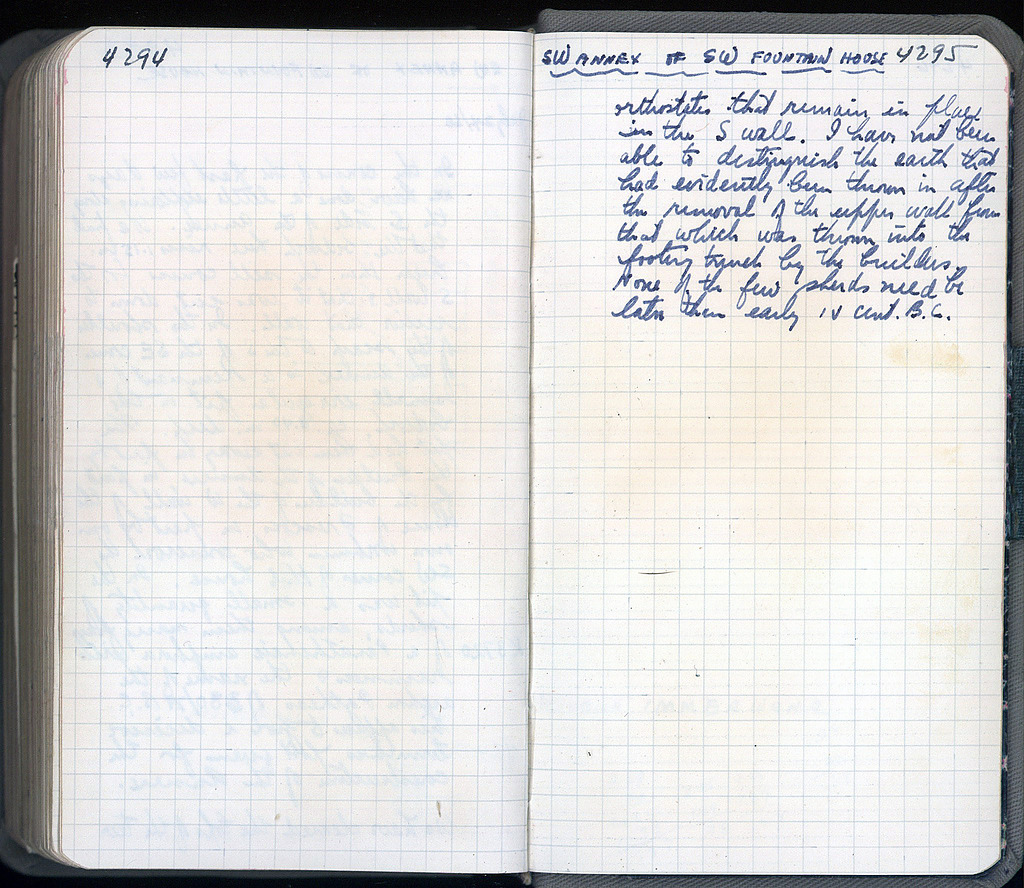 4294
SW ANNEX OF SW FOUNTAIN HOUSE 4295
orthostates that remain in place
in the S wall. I have not been
able to distinguish the earth that
had evidently been thrown in after
the removal of the upper wall from
that which was thrown into the
footing trench by the builders.
None of the few sherds need be
later than early IV cent. B.C.